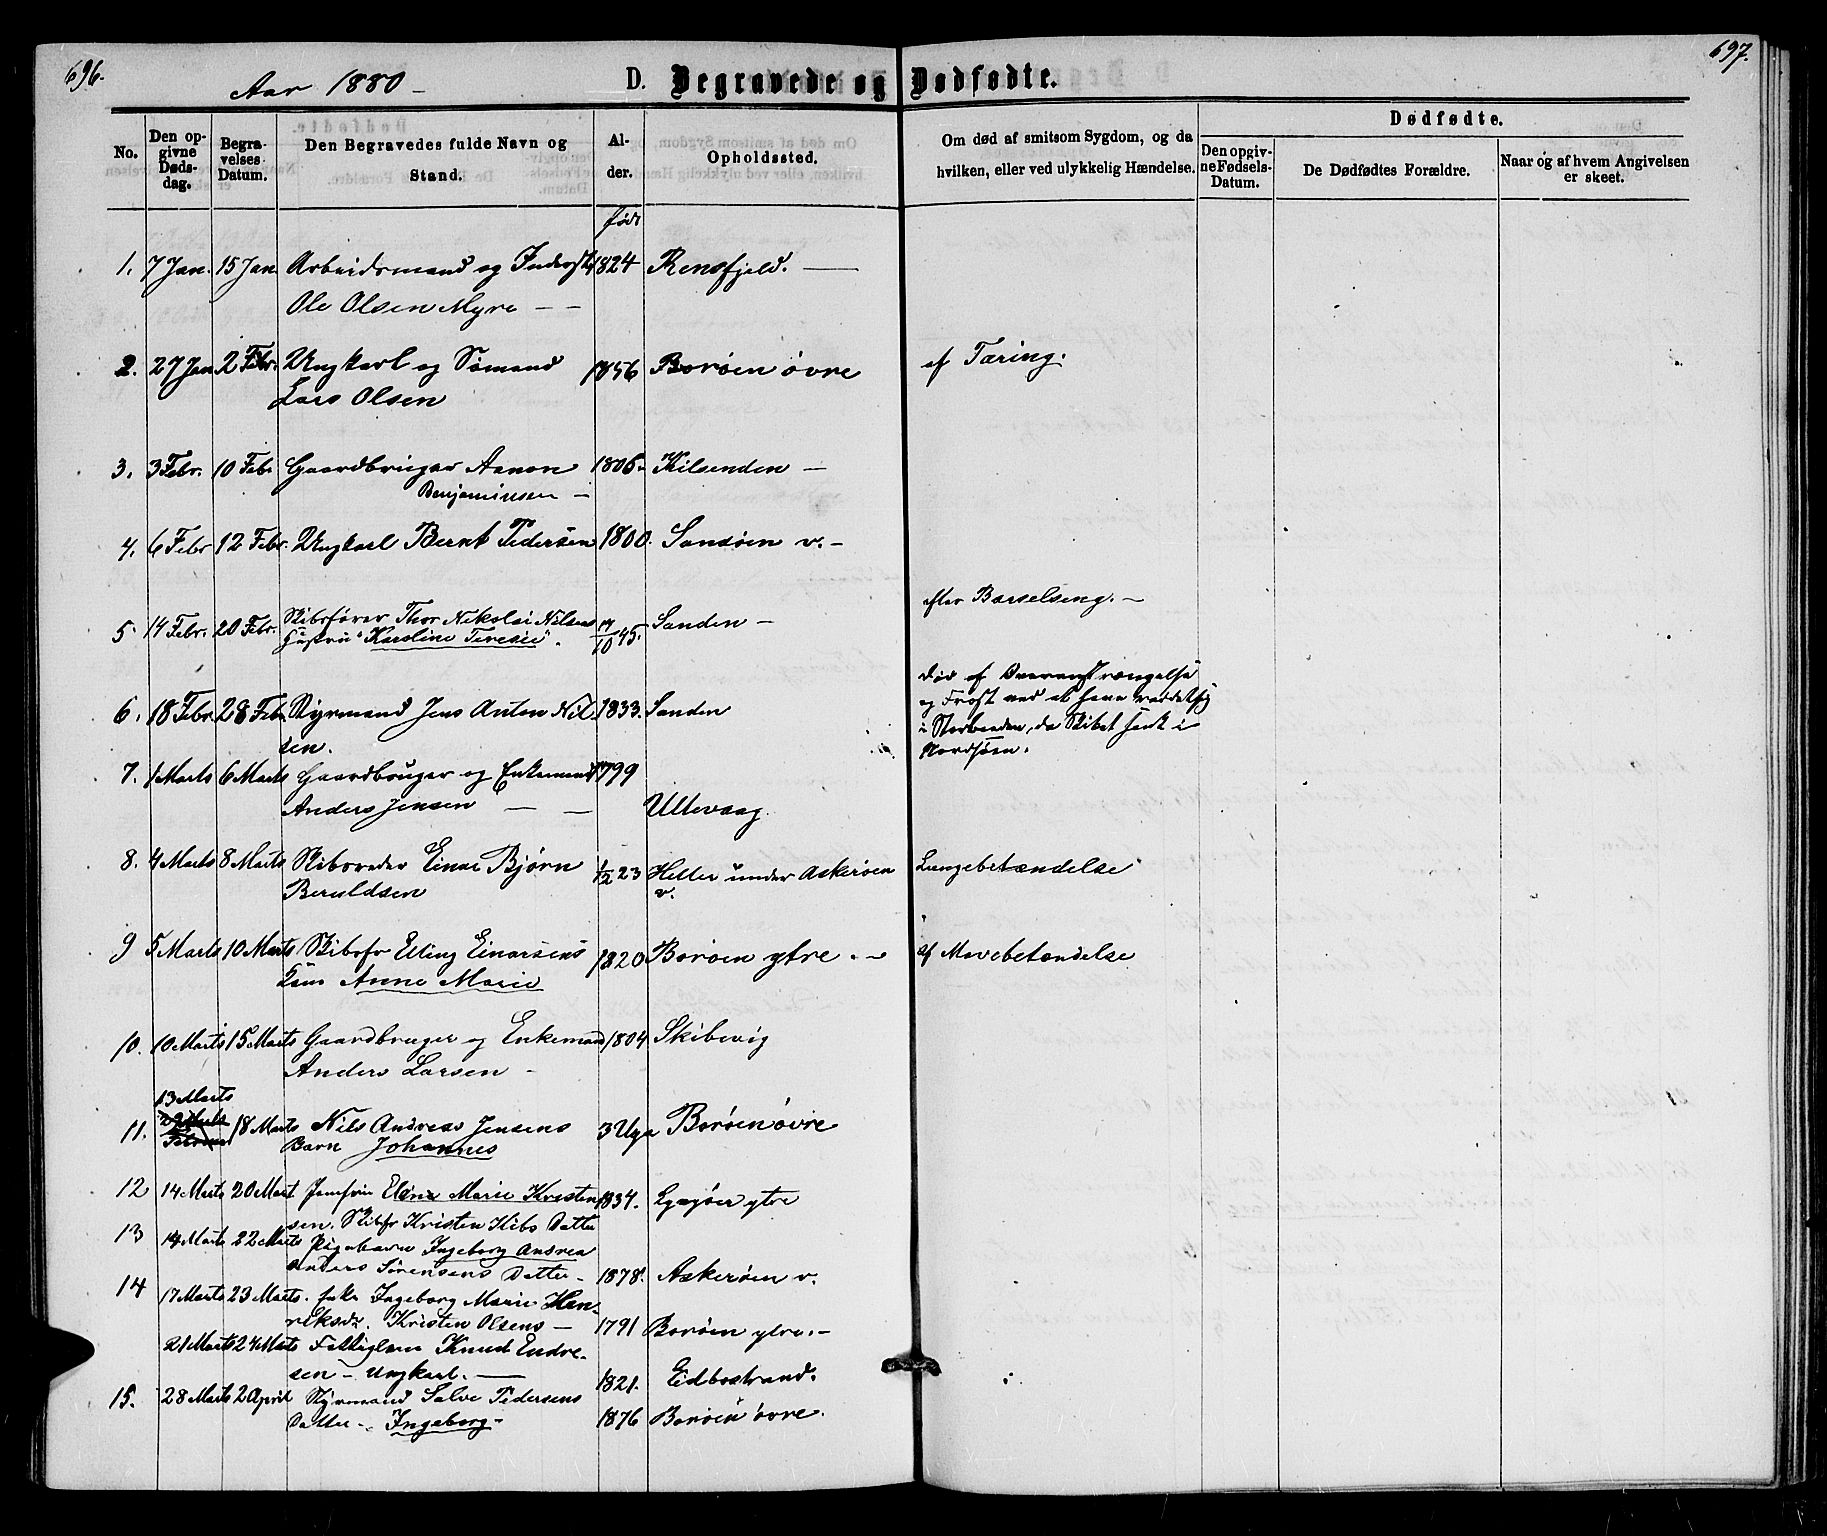 696.
697.
Aar 1880
D. Begravede og Dødfødte.
No.
Den opgivne Dødsdag.
Begravelses Datum.
Den Begravedes fulde Navn og Stand.
Alder.
Opholdssted.
Om død af smitsom Sygdom, og da hvilken, eller ved ulykkelig Hændelse.
Dødfødte.
Den opgivne Fødsels-Datum.
De Dødfødtes Forældre.
Naar og af hvem Angivelsen er skeet.
født
1. 7 Jan. 15 Jan Arbeidsmand og Inderst 1824 Rensfjeld. —
Ole Olsen Myre — —
2. 27 Jan 2 Febr. Ungkarl og Sømand 1856 Borøen øvre af Tæring.
Lars Olsen
3. 3 Febr. 10 Febr Gaardbruger Aanon 1805. Kilsenden —
Benjaminsen —
4. 6 Febr 12 Febr. Ungkarl Bernt Pedersen 1800. Sandøen v. —
5. 14 Febr. 20 Febr. Skibsfører Thor Nikolai Nilsens 17/10 45. Sanden — efter Barselseng. —
Hustru "Karoline Teresie".
6. 18 Febr 28 Feb Styrmand Jens Anton Nil- 1833. Sanden
sen.
død af Overanstrængelse
og Frost ved at have reddet sig
i Storbaaden, da Skibet sank i
Nordsøen.
7. 1 Marts 6 Marts Gaardbruger og Enkemand 1799
Anders Jensen — — Ullevaag.
8. 4 Marts 8 Marts Skibsreder Einar Bjørn 1/2 23 Heller under Askerøen Lungebetændelse
Beruldsen v.
9 5 Marts 10 Marts Skibsfr Elling Einarsens 1820 Borøen ytre. — af Mavebetændelse
Kone Anne Marie
10. 10 Marts 15 Marts Gaardbruger og Enkemand 1804 Skibevig
Anders Larsen —
13 Marts
11. 18 Marts Nils Andreas Jensens 3 Uger Borøen øvre
Barn Johannes
12 14 Marts 20 Mart Jomfru Elina Marie Kristen- 1834. Lyngøer ytre
sen. Skibsfr Kristen Datter
13 14 Marts 22 Marts Pigebarn Ingeborg Andrea
Anders Sørensens Datter — 1878. Askerøen v.
14 17 Marts 23 Marts. Enke Ingeborg Marie Hen-
riksdr. Kristen Olsens — 1791 Borøen ytre. —
21 Marts 24 Marts Fattiglem Knud Endre-
sen — Ungkarl. — 1821. Eidbostrand.
15. 28 Marts 2 April Styrmand Salve Pedersens
Datter — Ingeborg — 1876 Borøen øvre.